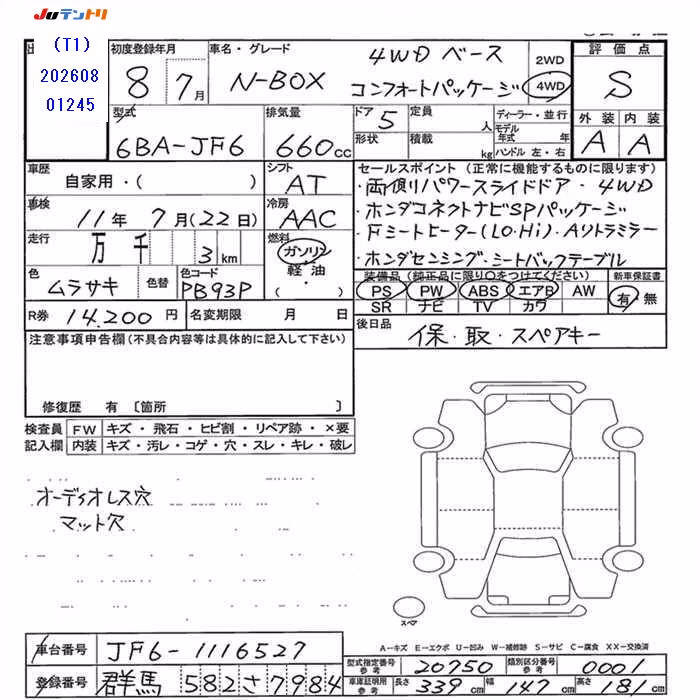 Juテントリ
(T1)
202608
01245
初度登録年月
8 7月
車名・グレード
N-BOX
4WD ベース
コンフォートパッケージ
2WD
4WD
評価点
S
外装 内装
A A
型式
6BA-JF6
排気量
660cc
ドア 5
形状
定員 人
積載 kg
ディーラー・並行
モデル年式 年
ハンドル 左・右
車歴
自家用・( )
シフト
AT
車検
11年 7月(22日)
冷房
AAC
走行
万 千 3 km
燃料
ガソリン
軽油・
( )
色
ムラサキ
色替
色コード
PB93P
R券 14,200円
名変期限 月 日
セールスポイント(正常に機能するものに限ります)
・両側パワースライドドア・4WD
・ホンダコネクトナビSPパッケージ
・Fシートヒーター(LO.Hi)・Aリトラミラー
・ホンダセンシング・シートバックテーブル
装備品(純正品に限り〇をつけてください)
PS PW ABS エアB AW
SR ナビ TV カワ
新車保証書
有・無
後日品
保・取・スペアキー
注意事項申告欄(不具合内容等は具体的に記入して下さい)
修復歴 有 〔箇所 〕
検査員記入欄
FW キズ・飛石・ヒビ割・リペア跡・×要
内装 キズ・汚レ・コゲ・穴・スレ・キレ・破レ
オーディオレス穴
マット欠
スペア
A-キズ E-エクボ U-凹み W-補修跡 S-サビ C-腐食 XX-交換済
車台番号 JF6-1116527
型式指定番号 参考 20750
類別区分番号 参考 0001
登録番号 群馬 582 さ 7984
車庫証明用 参考 長さ 339cm 幅 147cm 高さ 181cm